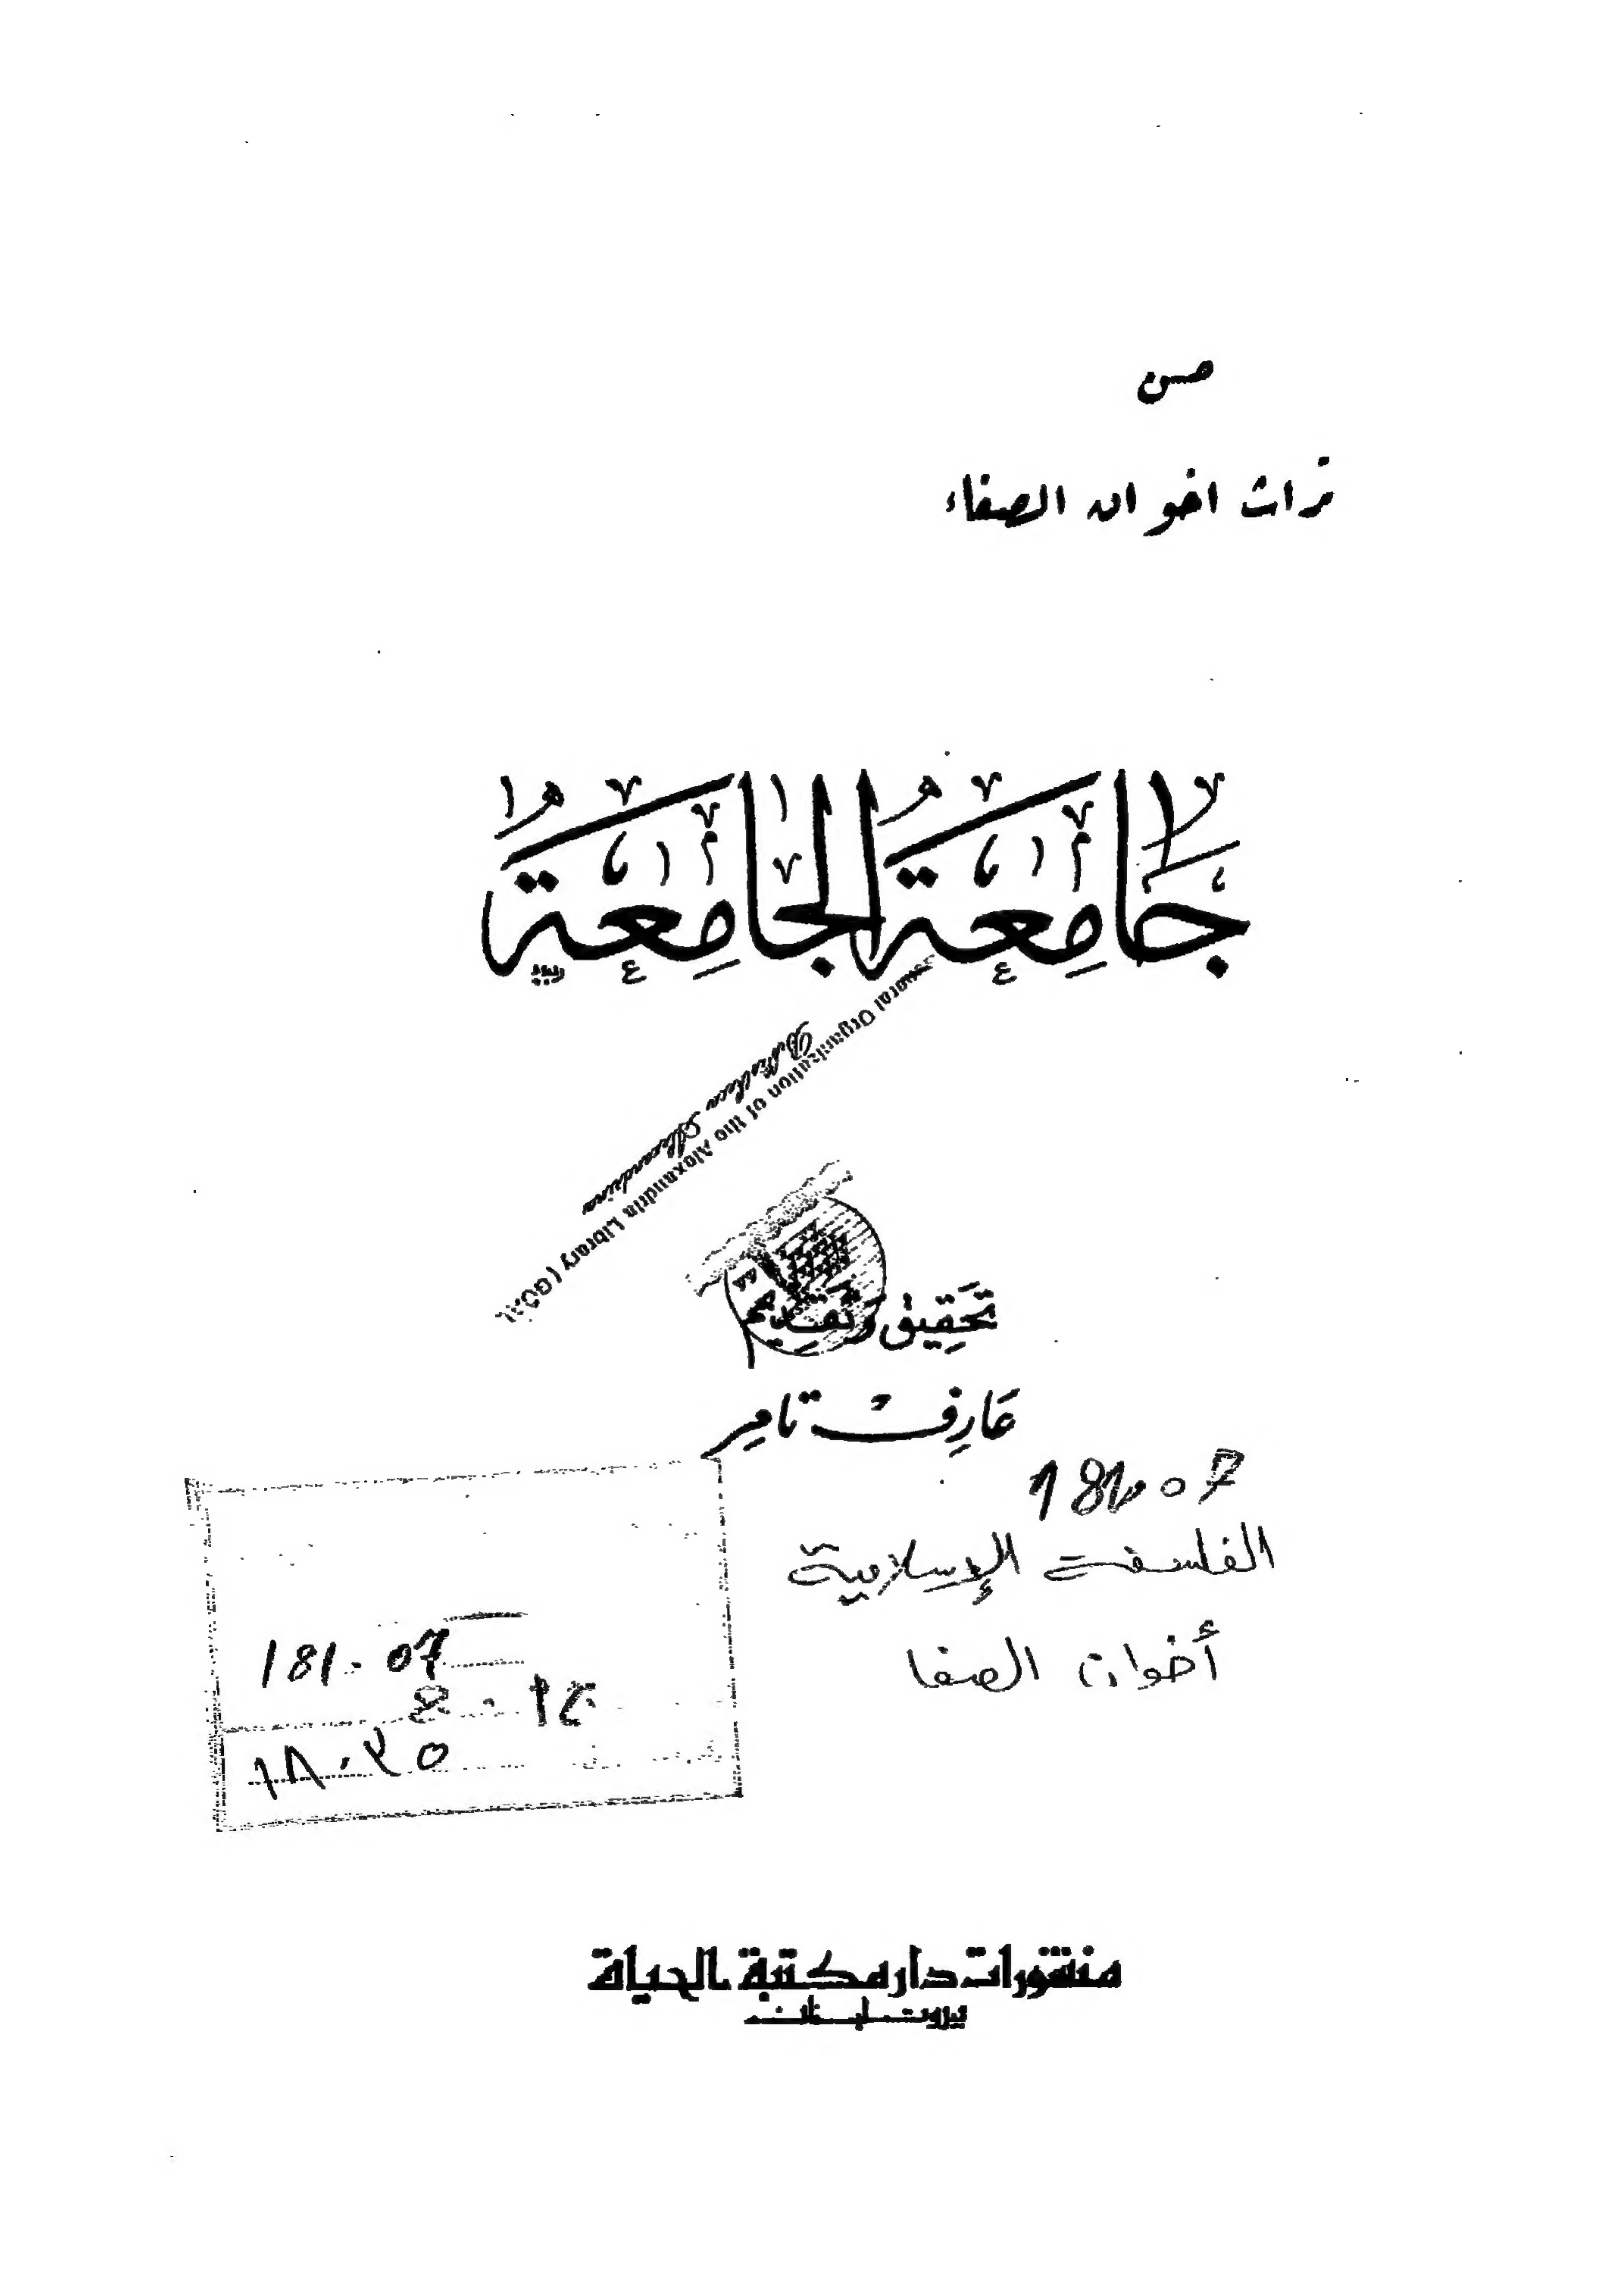 من
تراث اخوان الصفاء
جَامِعَة الجَامِعَة
General Organization of the Alexandria Library (GOAL
Bibliotheca Alexandrina
تحقِيق وَتقديم
عَارِف تامِر
181.07
الفلسفة الإسلامية
أخوان الصفا
181.07
منشورات دار مكتبة الحياة
بيروت - لبنان